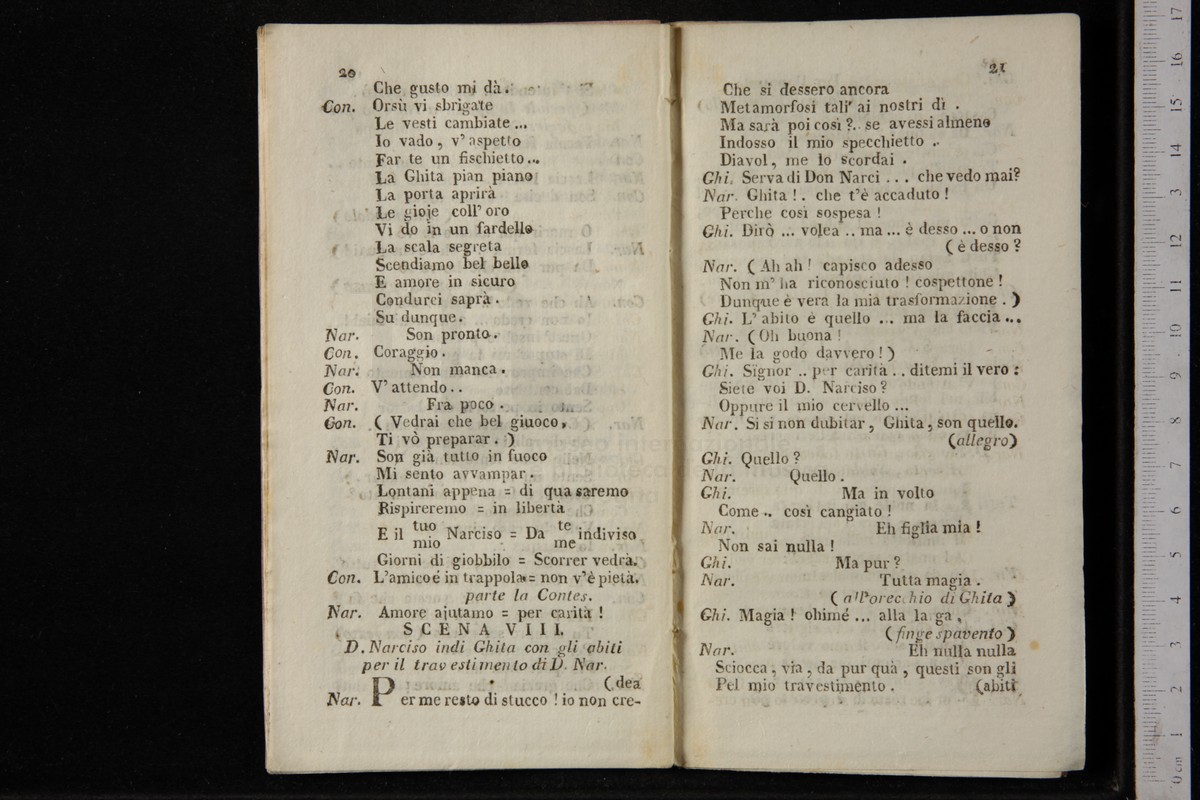 20
Che gusto mi dà.
Con. Orsù vi sbrigate
Le vesti cambiate ...
Io vado, v' aspetto
Far te un fischietto...
La Ghita pian piano
La porta aprirà
Le gioje coll' oro
Vi do in un fardello
La scala segreta
Scendiamo bel bello
E amore in sicuro
Condurci saprà.
Su dunque.
Nar. Son pronto.
Con. Coraggio.
Nar. Non manca.
Con. V' attendo..
Nar. Fra poco.
Con. ( Vedrai che bel giuoco,
Ti vò preparar. )
Nar. Son già tutto in fuoco
Mi sento avvampar.
Lontani appena = di qua saremo
Rispireremo = in libertà
E il tuo Narciso = Da te indiviso
mio me
Giorni di giobbilo = Scorrer vedrà.
Con. L'amico é in trappola = non v'è pietà.
parte la Contes.
Nar. Amore ajutamo = per carità !
SCENA VIII.
D. Narciso indi Ghita con gli abiti
per il travestimento di D. Nar.
(dea
Nar. Per me resto di stucco ! io non cre-
21
Che si dessero ancora
Metamorfosi tali' ai nostri dì .
Ma sarà poi così ?. se avessi almeno
Indosso il mio specchietto ..
Diavol, me lo scordai .
Ghi. Serva di Don Narci ... che vedo mai?
Nar. Ghita !. che t'è accaduto !
Perche così sospesa !
Ghi. Dirò ... volea .. ma ... è desso ... o non
( è desso ?
Nar. ( Ah ah ! capisco adesso
Non m' ha riconosciuto ! cospettone !
Dunque è vera la mia trasformazione . )
Ghi. L' abito é quello ... ma la faccia ...
Nar. ( Oh buona !
Me la godo davvero ! )
Ghi. Signor .. per carità .. ditemi il vero :
Siete voi D. Narciso ?
Oppure il mio cervello ...
Nar. Si si non dubitar, Ghita, son quello.
(allegro)
Ghi. Quello ?
Nar. Quello .
Ghi. Ma in volto
Come .. così cangiato !
Nar. Eh figlia mia !
Non sai nulla !
Ghi. Ma pur ?
Nar. Tutta magia .
( all'orecchio di Ghita )
Ghi. Magia ! ohimé ... alla larga ,
( finge spavento )
Nar. Eh nulla nulla
Sciocca , via , da pur quà , questi son gli
Pel mio travestimento . (abiti
0 cm 1 2 3 4 5 6 7 8 9 10 11 12 13 14 15 16 17